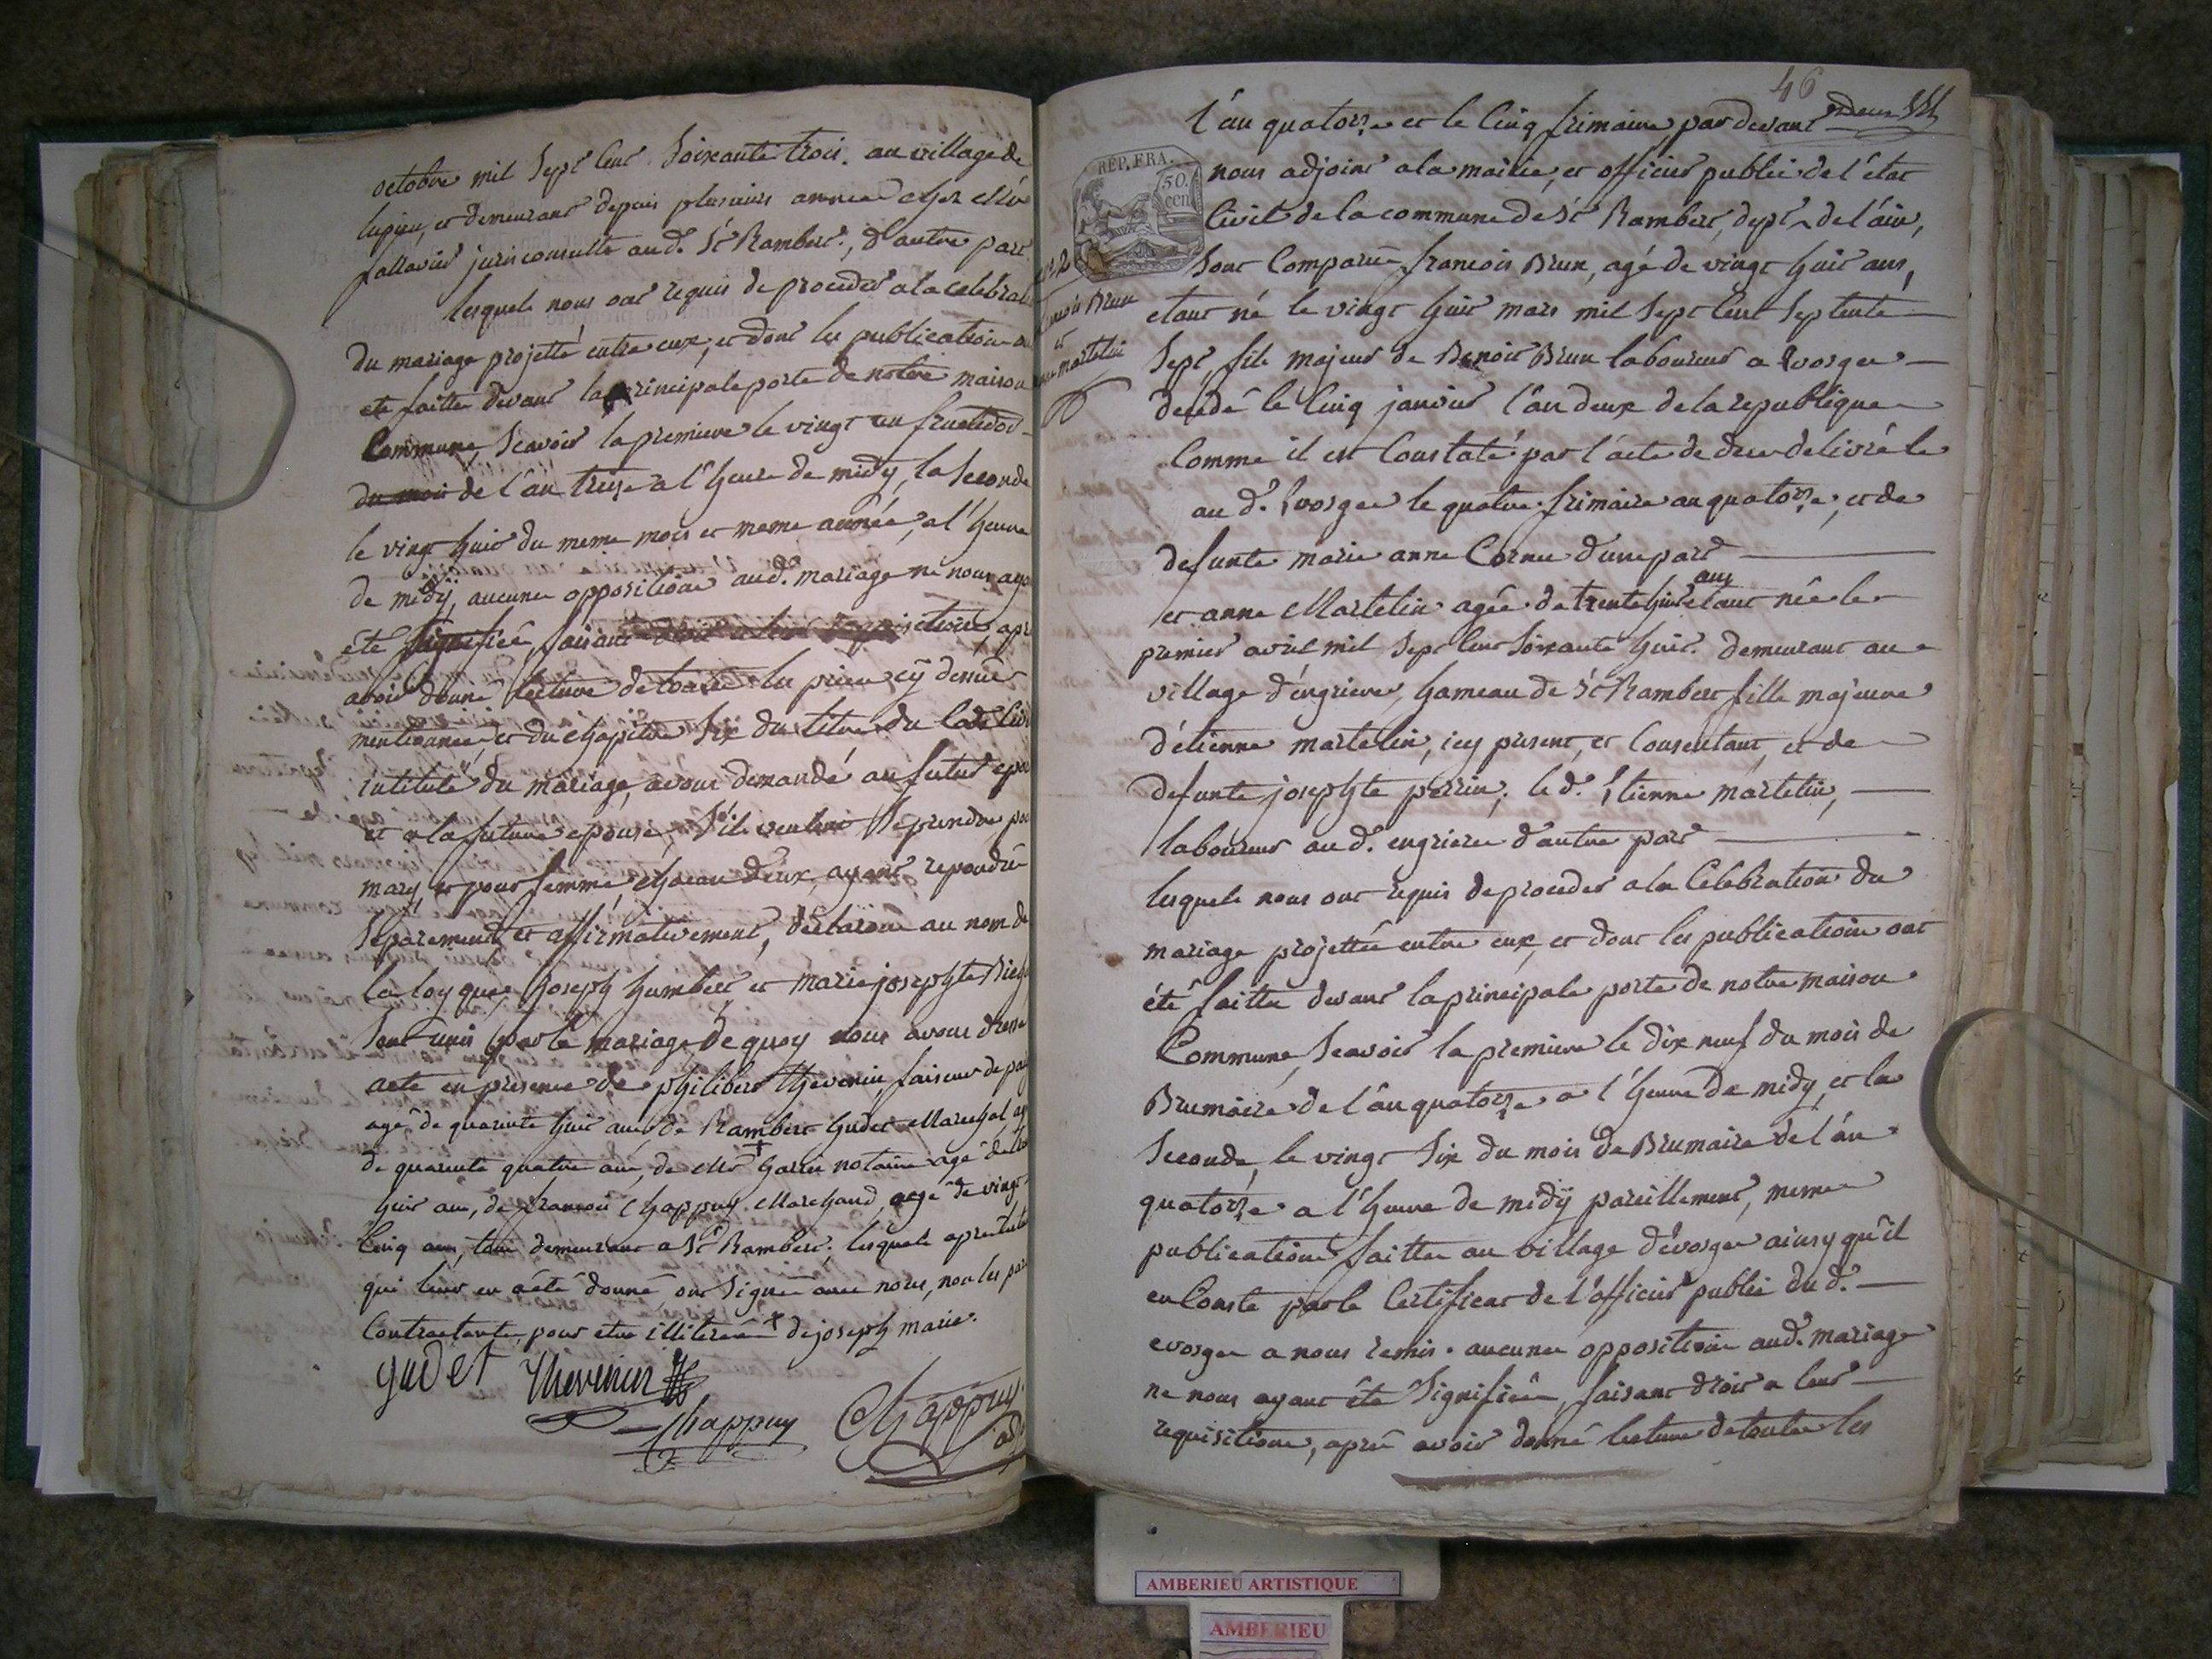 octobre mil sept cent soixante trois. au village de
lupieu, et demeurant depuis plusieurs années chez Mr
pallavier jurisconsulte aud. St Rambert, d'autre part
lesquels nous ont requis de proceder a la celebrat
du mariage projetté entre eux, et dont les publications o
eté faittes devant la principale porte de notre maison
Commune, scavoir la premiere le vingt un fructidor
du mois de l'an treize a l'heure de midy, la seconde
le vingt huit du meme mois et meme année, a l'heure
de midy, aucunes oppositions aud. mariage ne nous aya
été signifiées, faisant apr
avoir donné lecture de toutes les pieces cy dessus
mentionnées, et du chapitre six du titre du Code Civi
intitulé du mariage, avons demandé au futur epou
et a la future epouse, s'ils veulent se prendre po
mary, et pour femme, chacun d'eux, ayant repondu
separement et affirmativement, declarons au nom de
la loy que, joseph humbert et marie josephte
sont unis par le mariage de quoy nous avons dressé
acte en presence de philibert thevenin, faiseur de
agé de quarante huit ans, de Rambert Gudet Marechal, ag
de quarante quatre ans, de Mr + notaire agé de
huit ans, de francois Chappuy Marchand, agé de vingt
cinq ans, tous demeurant a St Rambert. lesquels apres
qui leur en a été donné, ont signé avec nous, non les par
Contractantes, pour etre illiterées + de joseph marie.
gudet thevenin
Chappuy Chappuy
adj
46
deux
l'an quatorze et le cinq frimaire, par devant
REP. FRA.
50. cen
nous adjoint a la mairie, et officier public de l'état
Civil de la commune de St Rambert, dept de l'ain,
sont Comparus francois Brun, agé de vingt huit ans,
francois Brun
et
martelin
etant né le vingt huit mars mil sept cent septente
sept, fils majeur de Benoit Brun laboureur a Evosges
decedé le cinq janvier l'an deux de la republique
Comme il est Constaté par l'acte de deces delivré le
au d. Evosges le quatre frimaire an quatorze, et de
defunte marie anne Cornu d'une part
et anne Martelin agée de trente huit ans etant née le
premier avril mil sept cent soixante huit. demeurant au
village d'engrieres, hameau de St Rambert fille majeure
d'étienne martelin, icy present, et Consentant, et de
defunte josephte perrin, le d. Etienne martelin,
laboureur au d. engrieres d'autre part
lesquels nous ont requis de proceder a la Celebration du
mariage projettée entre eux, et dont les publications ont
été faittes devant la principale porte de notre maison
Commune, scavoir la premiere le dix neuf du mois de
Brumaire de l'an quatorze a l'heure de midy, et la
seconde, le vingt six du mois de Brumaire de l'an
quatorze a l'heure de midy pareillement, memes
publications faittes au village d'evosges ainsy qu'il
en Conste par le Certificat de l'officier public du d.
evosges a nous remis. aucunes oppositions aud. mariage
ne nous ayant été signifiées, faisant droit a leur
requisitions, aprés avoir donné lecture de toutes les
AMBERIEU ARTISTIQUE
AMBERIEU